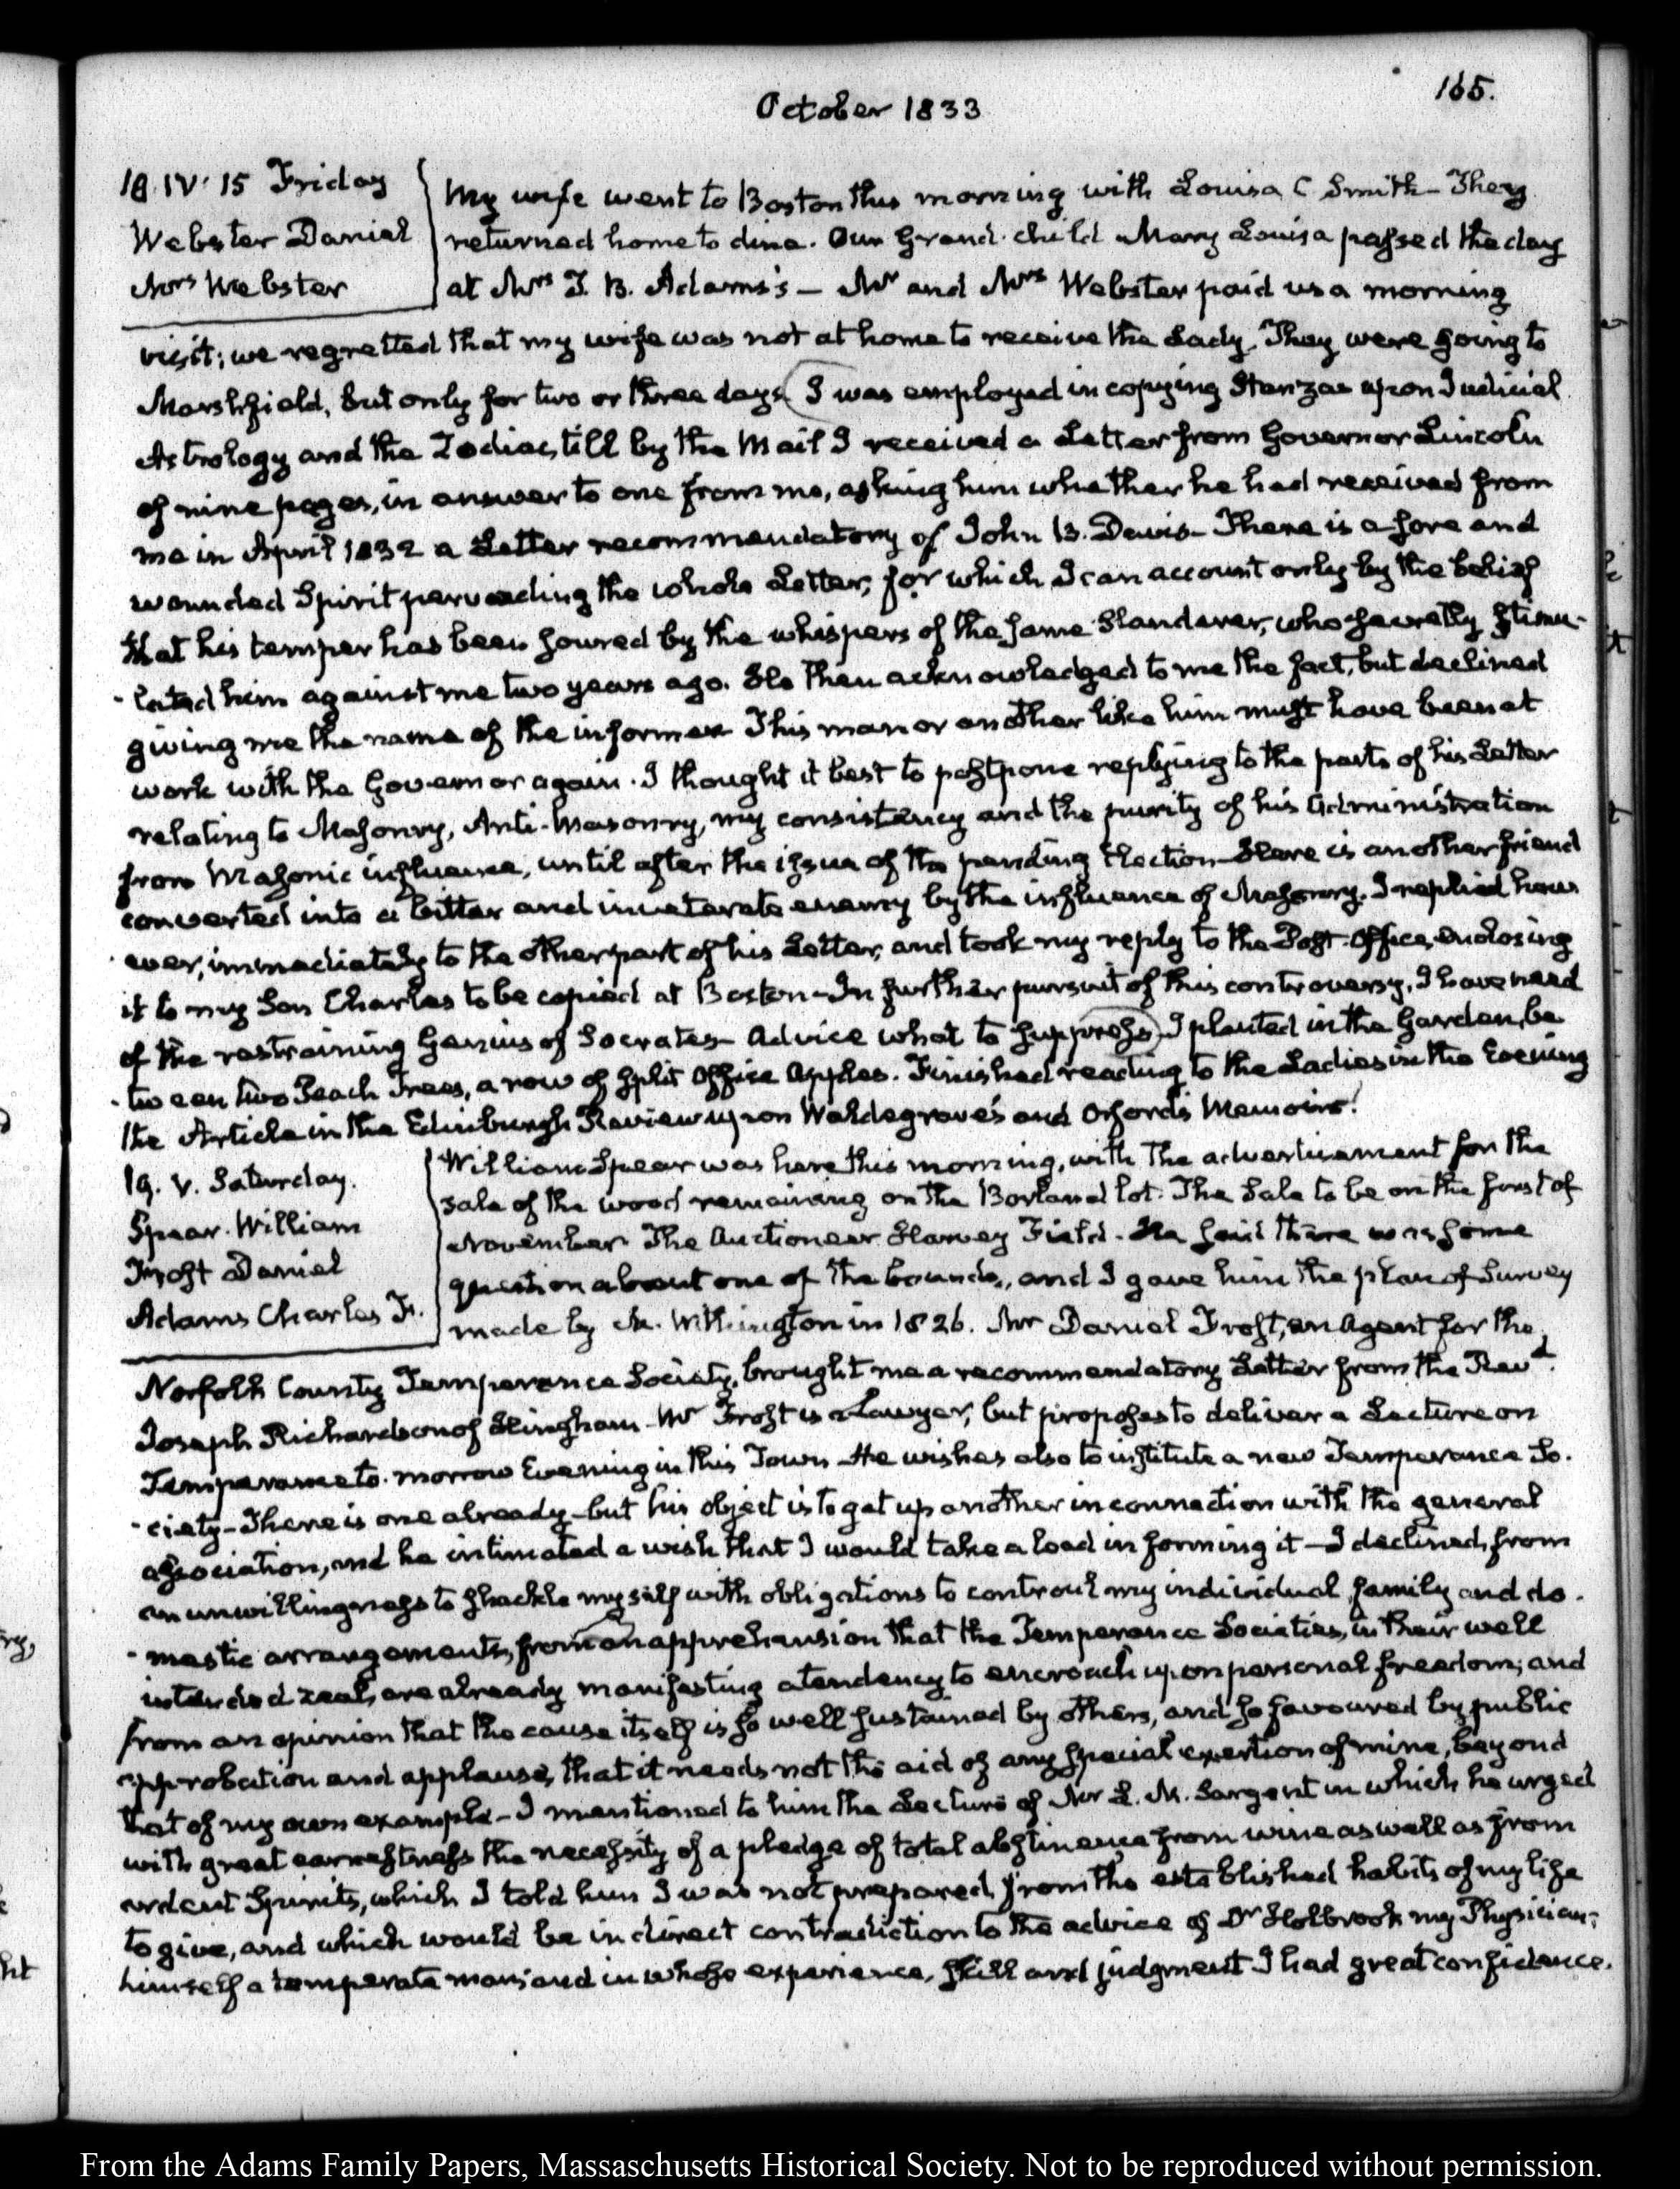 165.
October 1833
18. IV. 15 Friday
Webster Daniel
Mrs Webster
My wife went to Boston this morning with Louisa C Smith - They
returned home to dine. Our Grand-child Mary Louisa passed the day
at Mrs T. B. Adams's - Mr and Mrs Webster paid us a morning
visit; we regretted that my wife was not at home to receive the Lady. They were going to
Marshfield, but only for two or three days. I was employed in copying Stanzas upon Judicial
Astrology and the Zodiac, till by the Mail I received a Letter from Governor Lincoln
of nine pages, in answer to one from me, asking him whether he had received from
me in April 1832 a Letter recommendatory of John B. Davis - There is a sore and
wounded Spirit pervading the whole Letter, for which I can account only by the belief
that his temper has been soured by the whispers of the same Slanderer, who secretly stimu-
-lated him against me two years ago. He then acknowledged to me the fact, but declined
giving me the name of the informer. This man or another like him must have been at
work with the Governor again. I thought it best to postpone replying to the parts of his Letter
relating to Masonry, Anti-Masonry, my consistency and the purity of his Administration
from Masonic influence, until after the issue of the pending Election - Here is another friend
converted into a bitter and inveterate enemy by the influence of Masonry. I replied how
ever, immediately to the other part of his Letter, and took my reply to the Post-Office, enclosing
it to my Son Charles to be copied at Boston - In further pursuit of this controversy, I have need
of the restraining Genius of Socrates - Advice what to suppress. I planted in the Garden, be
-tween two Peach Trees, a row of split Office Apples. Finished reading to the Ladies in the Evening
the Article in the Edinburgh Review upon Waldegrave's and Orford's Memoirs.
19. V. Saturday.
Spear. William
Frost Daniel
Adams Charles F.
William Spear was here this morning, with the advertisement for the
sale of the wood remaining on the Borland lot. The Sale to be on the first of
November. The Auctioneer Harvey Field. He said there was some
question about one of the bounds, and I gave him the plan of Survey
made by Mr. Withington in 1826. Mr Daniel Frost, an Agent for the
Norfolk County Temperance Society, brought me a recommendatory Letter from the Revd.
Joseph Richardson of Hingham. Mr Frost is a Lawyer, but proposes to deliver a Lecture on
Temperance to-morrow Evening in this Town. He wishes also to institute a new Temperance So.
-ciety - There is one already - but his object is to get up another in connection with the general
association, and he intimated a wish that I would take a lead in forming it - I declined, from
an unwillingness to shackle myself with obligations to controul my individual, family and do.
-mestic arrangements, from an apprehension that the Temperance Societies, in their well
intended zeal, are already manifesting a tendency to encroach upon personal freedom; and
from an opinion that the cause itself is so well sustained by others, and so favoured by public
approbation and applause, that it needs not the aid of any special exertion of mine, beyond
that of my own example - I mentioned to him the Lecture of Mr L. M. Sargent in which he urged
with great earnestness the necessity of a pledge of total abstinence from wine as well as from
ardent Spirits, which I told him I was not prepared, from the established habits of my life
to give, and which would be in direct contradiction to the advice of Dr Holbrook my Physician;
himself a temperate man; and in whose experience, skill and judgment I had great confidence.
From the Adams Family Papers, Massachusetts Historical Society. Not to be reproduced without permission.